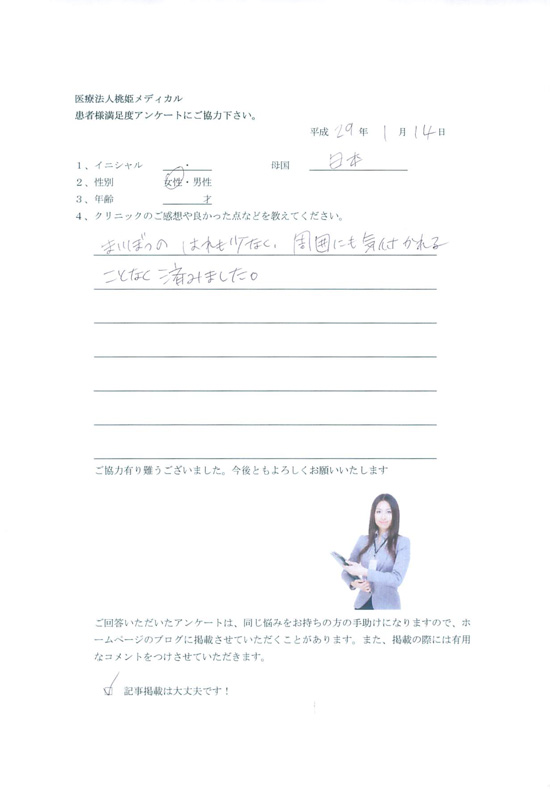 医療法人桃姫メディカル
患者様満足度アンケートにご協力下さい。
平成 29 年 1 月 14 日
1、イニシャル ・ 母国 日本
2、性別 女性・男性
3、年齢 才
4、クリニックのご感想や良かった点などを教えてください。
まいぼつの はれも少なく、周囲にも気付かれる
ことなく済みました。
ご協力有り難うございました。今後ともよろしくお願いいたします
ご回答いただいたアンケートは、同じ悩みをお持ちの方の手助けになりますので、ホ
ームページのブログに掲載させていただくことがあります。また、掲載の際には有用
なコメントをつけさせていただきます。
☑ 記事掲載は大丈夫です！